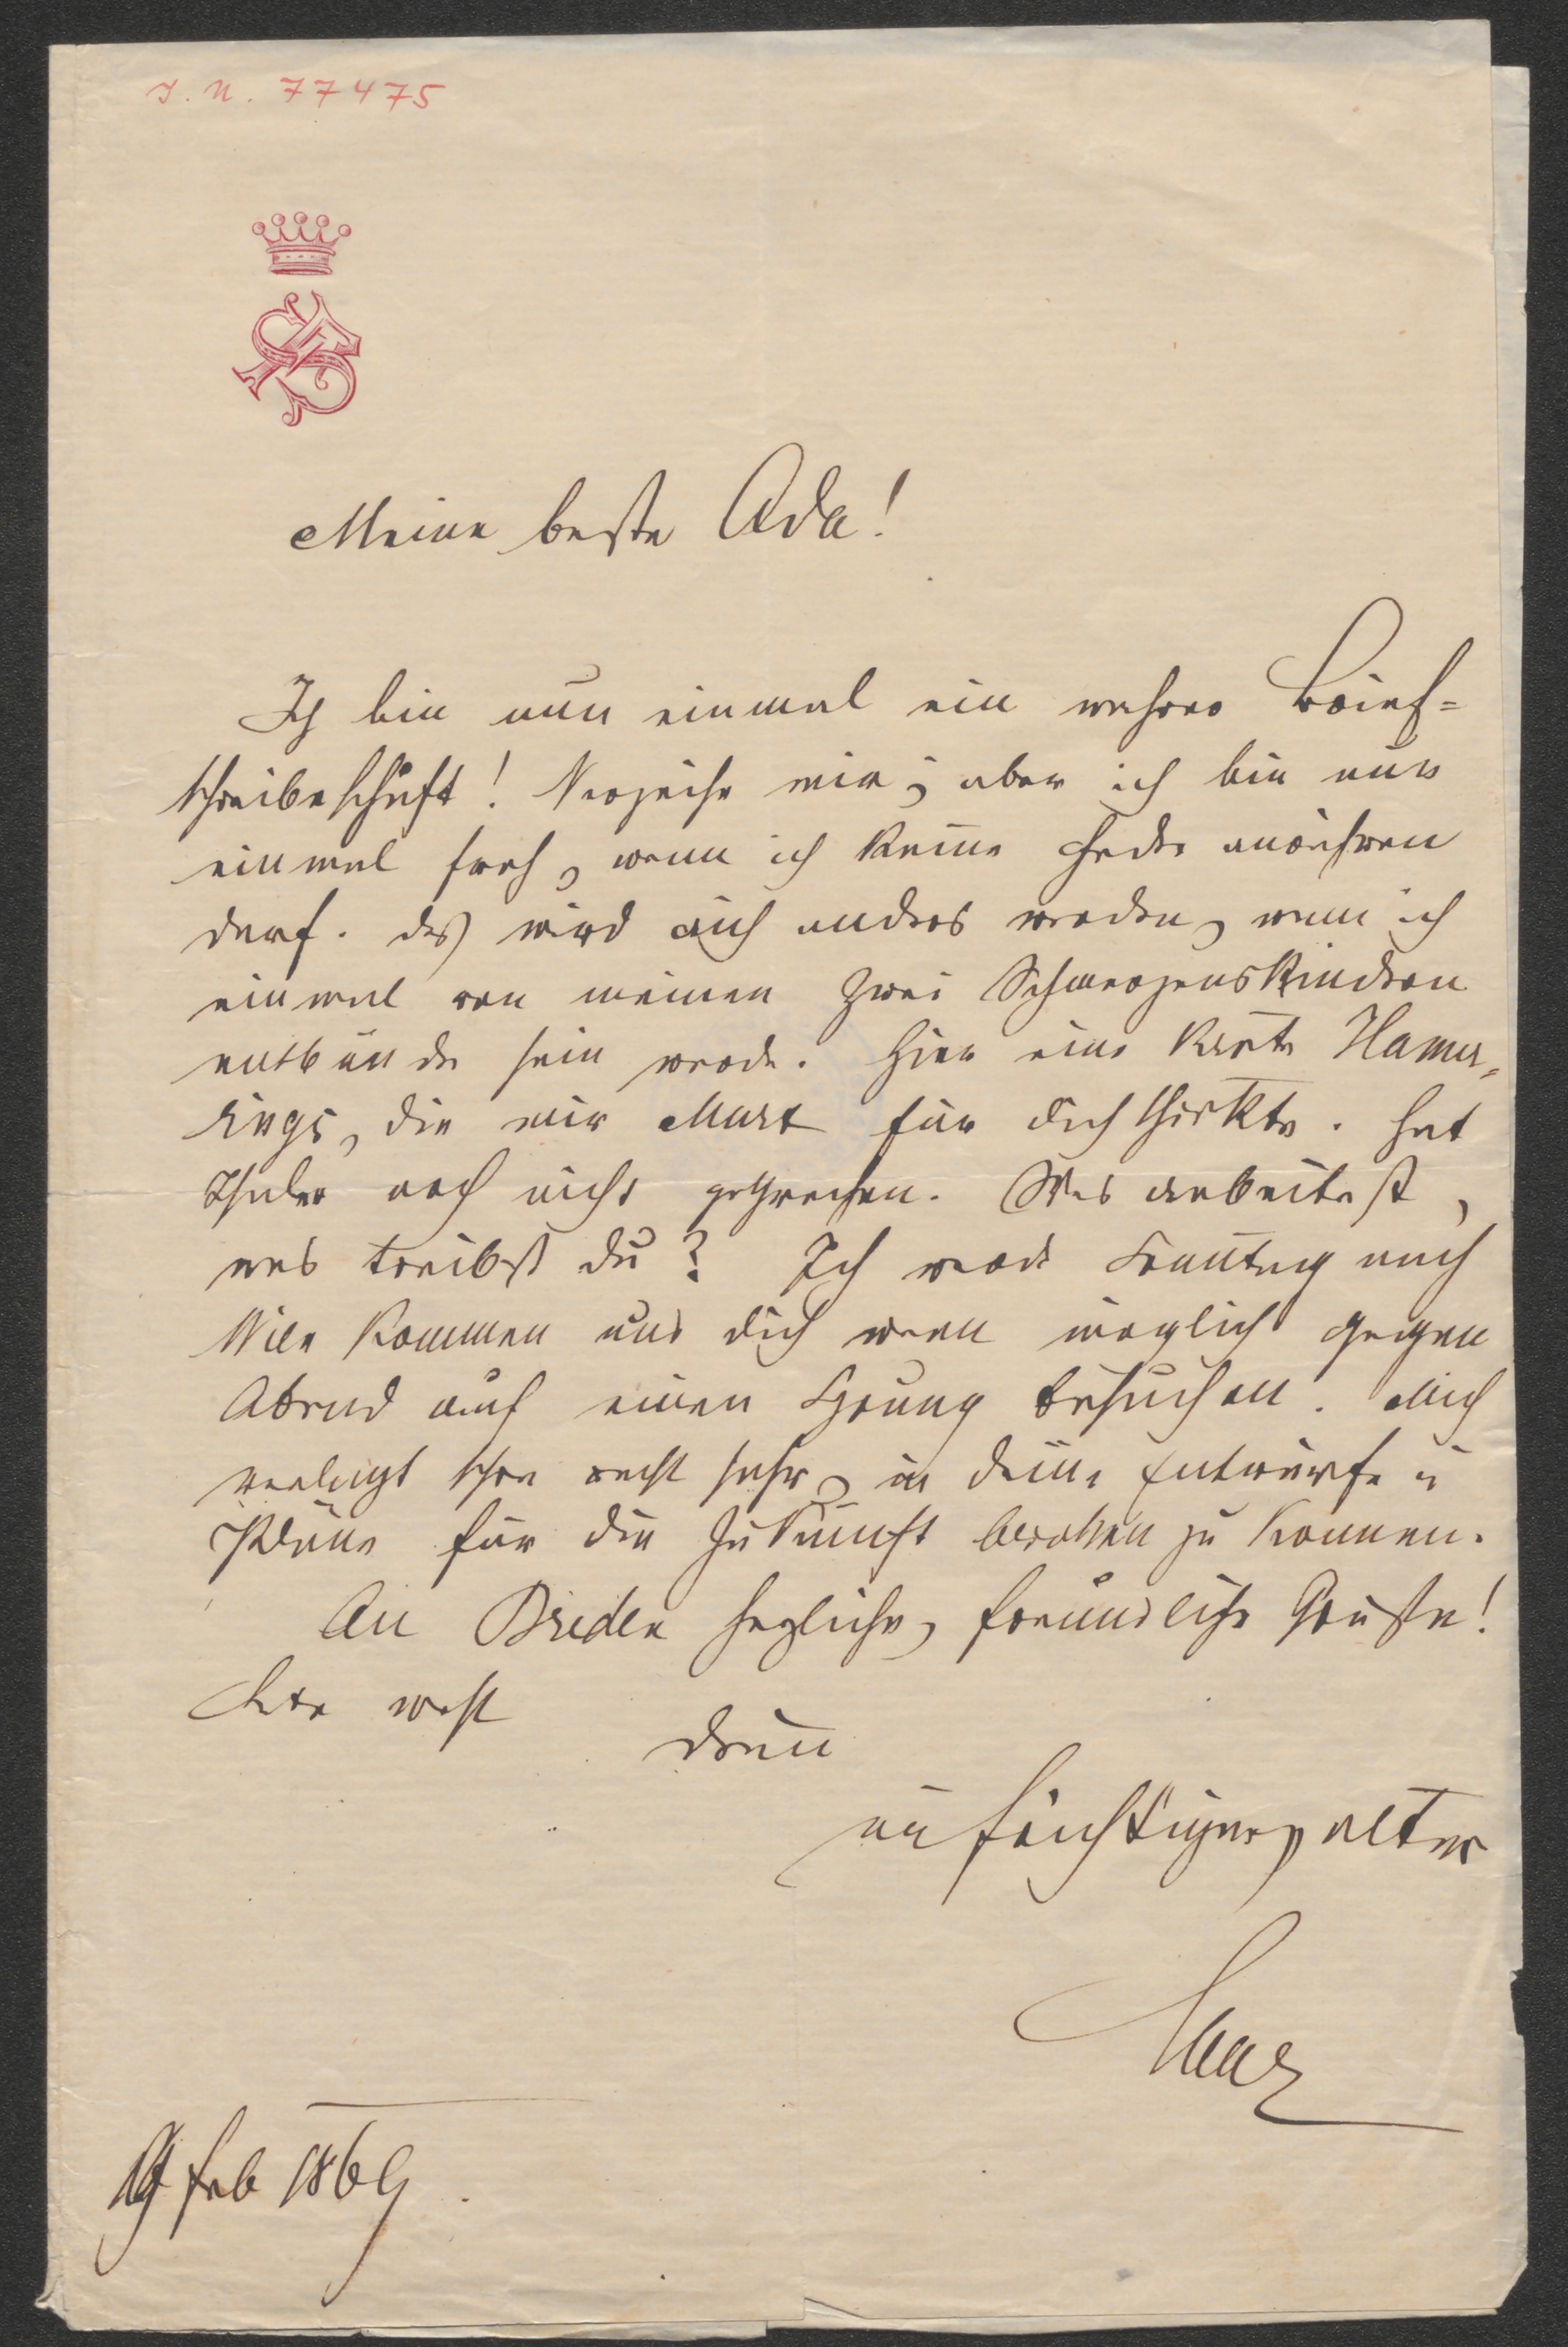 J. N. 77475
Meine beste Ada!
Ich bin nun einmal ein wahrer Brief=
schreibeschuft! Verzeihe mir; aber ich bin nun
einmal froh, wenn ich keine Feder anrühren
darf. Das wird auch anders werden, wenn ich
einmal von meinen zwei Schmerzenskindern
entbunden sein werde. Hier eine Karte Hamer=
lings, die mir Marx für dich schickte. Hat
Thaler noch nicht gesprochen. Was arbeitest,
was treibst du? Ich werde Sonntag nach
Wien kommen und dich wenn möglich gegen
Abend auf einen Sprung besuchen. Mich
verlangt schon recht sehr, in deine Entwürfe u
Pläne für die Zukunft zu können.
An Breden herzliche, freundliche Grüße!
Lebe wohl
dein
aufrichtiger, alter
Saar
19 Feb 1869.